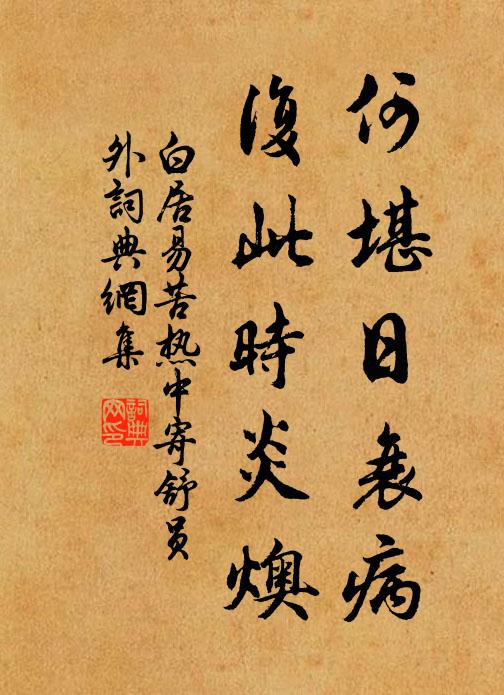 何堪日衰病
復此時炎燠
白居易苦热中寄舒员
外詞典網集
詞典
网印